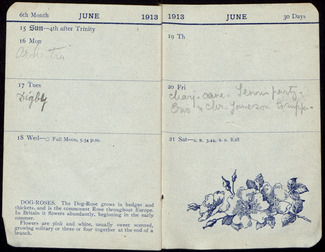 6th Month JUNE 1913
15 Sun—4th after Trinity
16 Mon
17 Tues
Digby
18 Wed—○ Full Moon, 5.54 p.m.
DOG-ROSES. The Dog-Rose grows in hedges and
thickets, and is the commonest Rose throughout Europe.
In Britain it flowers abundantly, beginning in the early
summer.
Flowers are pink and white, usually sweet scented,
growing solitary or three or four together at the end of a
branch.
1913 JUNE 30 Days
19 Th
20 Fri
Tennis party.
21 Sat—S. R. 3.44, S. S. 8.18